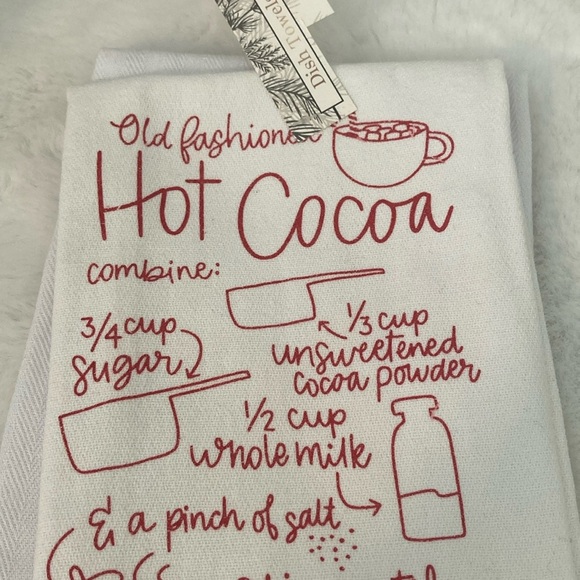 Dish Towels
Old fashioned
Hot Cocoa
combine:
3/4 cup
sugar
1/3 cup
unsweetened
cocoa powder
1/2 cup
whole milk
& a pinch of salt